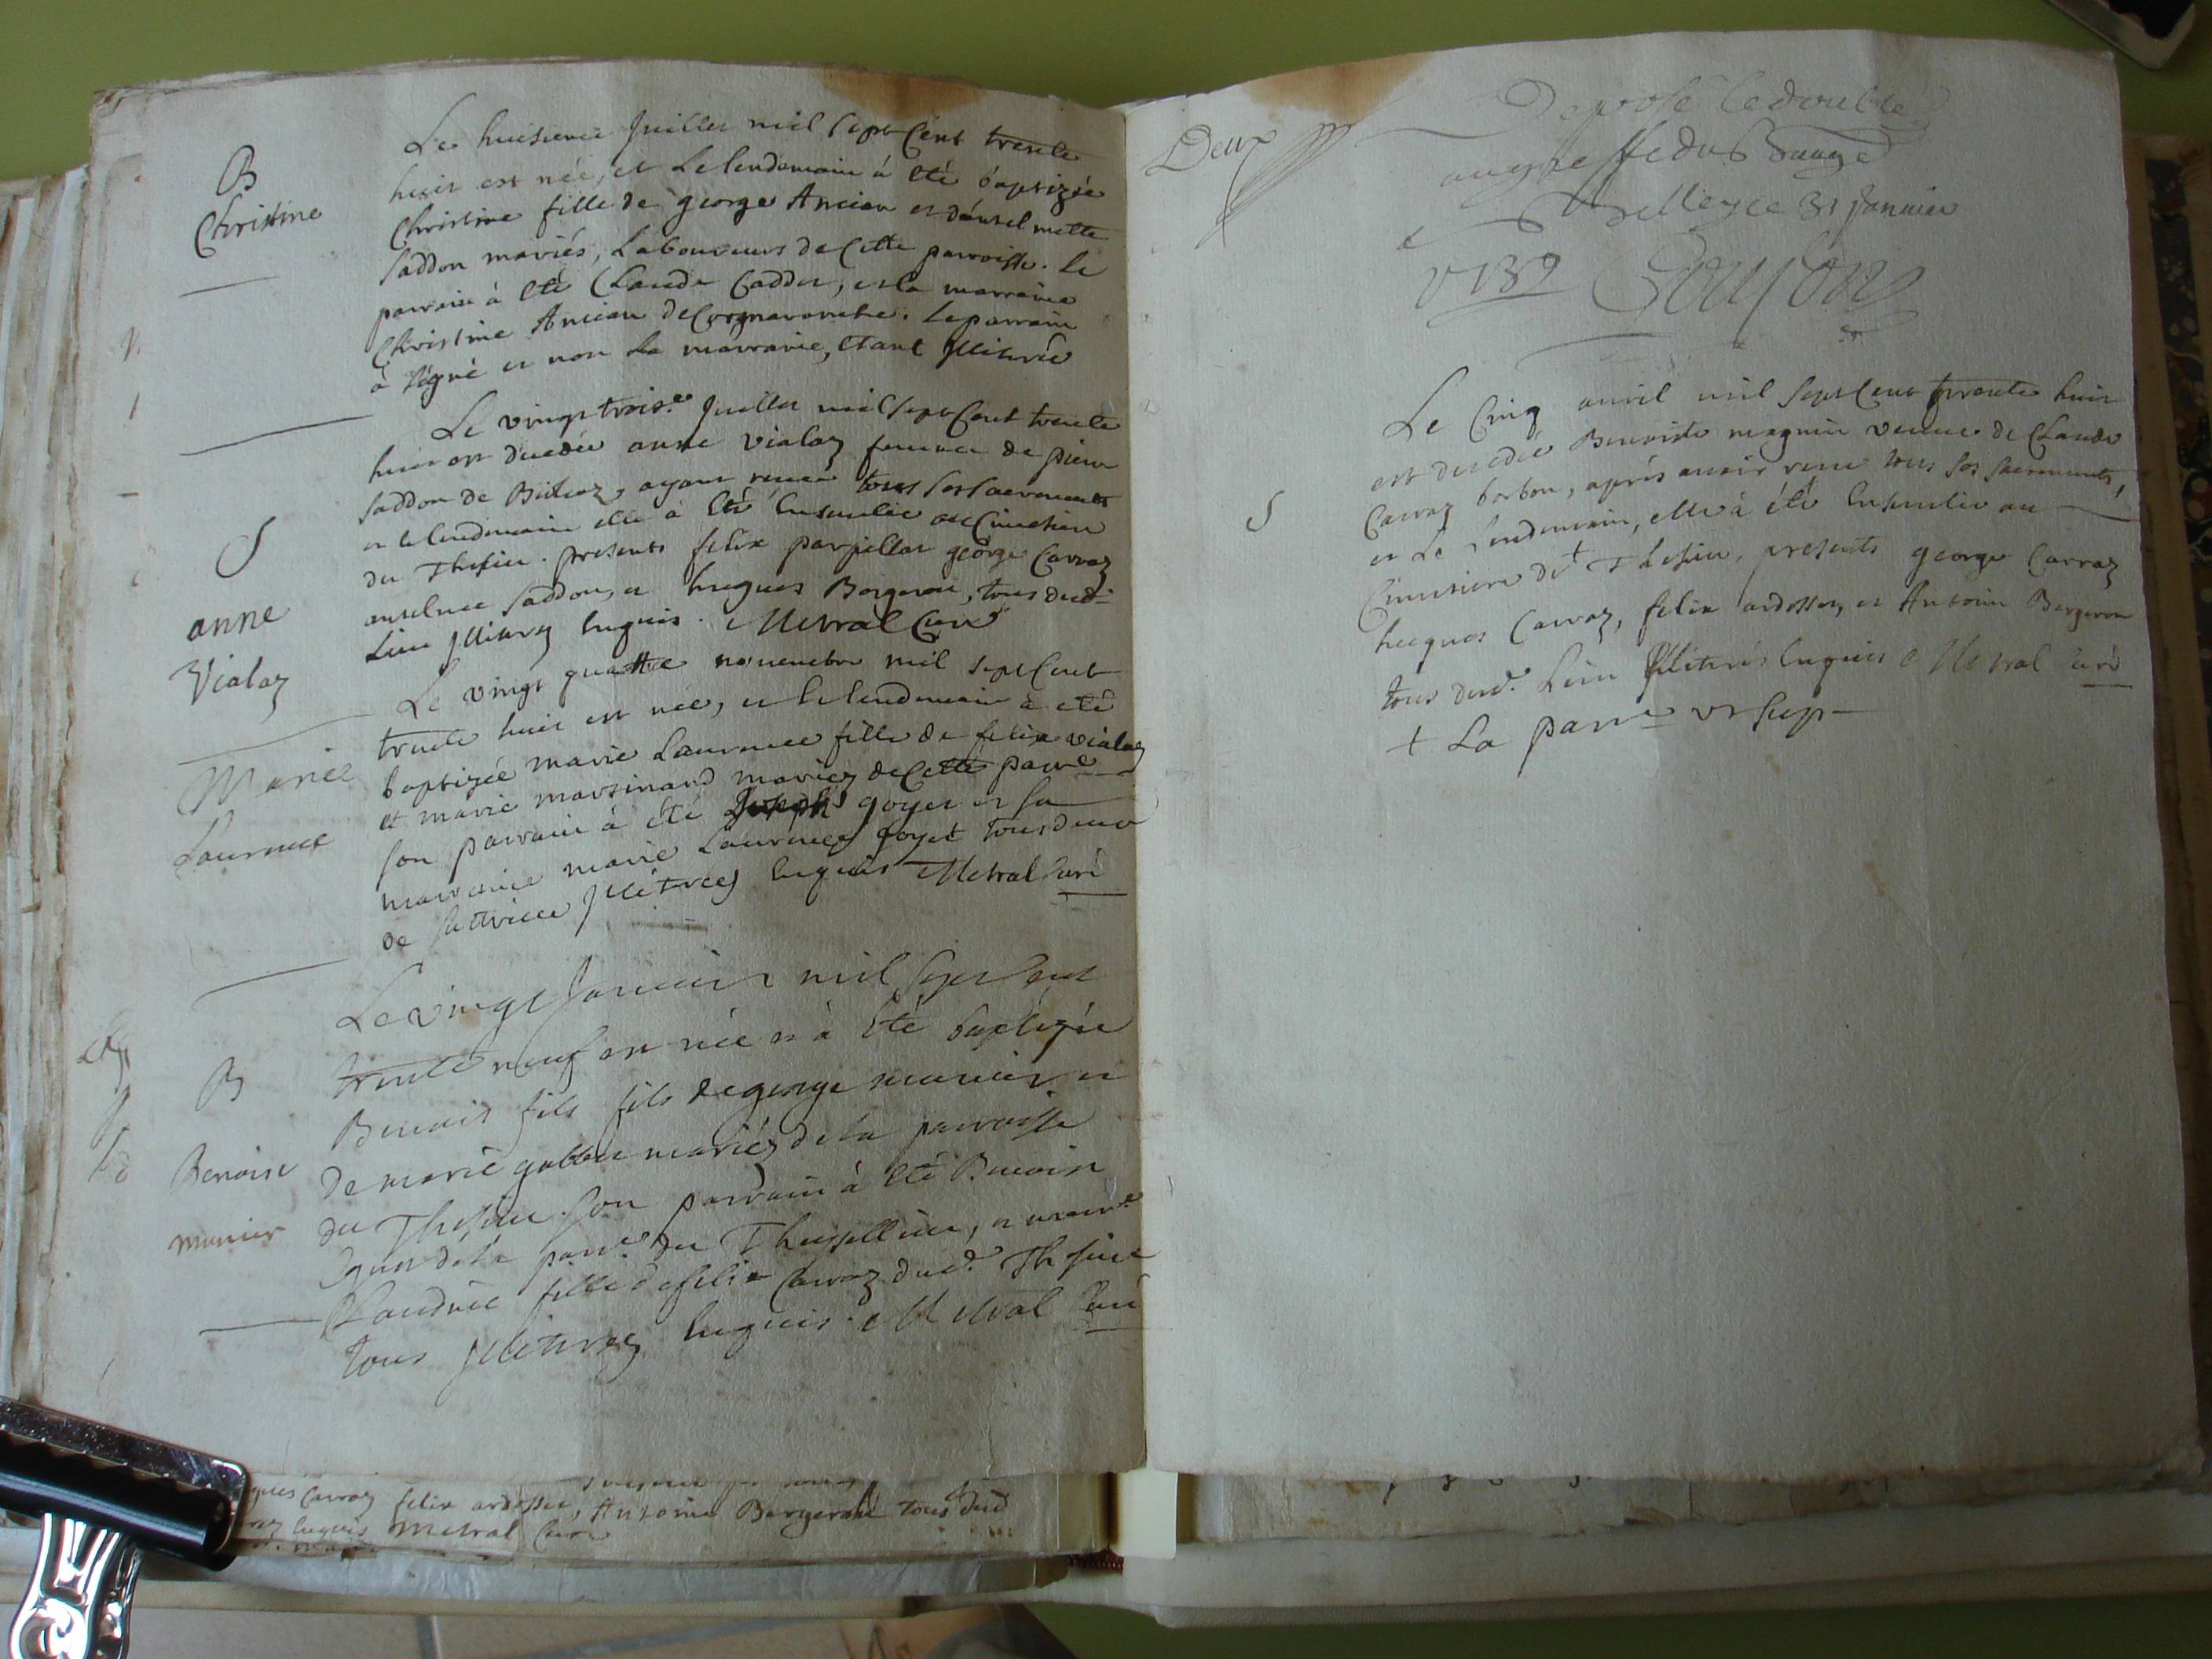 B
Christine
Le huitieme Juillet mil sept Cent trente
huit est née, et Le lendemain à été baptizée
Christine fille de george Ancian et d'anselmette
Saddon mariés, Laboureurs de Cette parroisse. Le
parrain à été Claude Caddet, et la marraine
Christine Ancian de Leparrain
à signé et non La marraine, étant illiterée
S
anne
Vialaz
Le vingt trois.e Juillet mil sept Cent trente
huit est decedée anne vialaz femme de pierre
Saddon de ayant receu tous ses sacrements
et le lendemain elle à été Ensevelie au Cimetiere
du Thesieu. presents felix parpillat george Carraz
anselme Saddon, et hugues Bergeron, tous dud.
Lieu illiterez Enquis. Metral Curé
Marie
Laurence
Le vingt quattre novembre mil sept Cent
trente huit est née, et le lendemain à eté
baptizée marie Laurence fille de felix vialaz
et marie martinand mariez de Cette parr.e
son parrain à été Joseph goyet et sa
marraine marie Laurence goyet tous deux
de illiterez Enquis Metral Curé
B
Benoist
munier
Le vingt Janvier mil sept Cent
trente neuf est née et à été baptizée
Benoit fils fils de george munier et
de marie mariéz de la parroisse
du Thesieu. Son parrain à été Benoit
de la parr.e du Thuzellieu, et marr.e
Claudine fille de felix Carraz dud. Thesieu
tous illiterez Enquis. Metral Curé
Carraz felix ardosset, Antoine Bergeron tous dud
Enquis Metral Curé
Deux
Deposé le double
au greffe du Baage
Belley ce 31 Janvier
1739 Goujon
S
Le Cinq avril mil sept Cent trente huit
est decedée Benoiste magnin veuve de Claude
Carraz borbon, aprés avoir receu tous ses sacrements,
et Le Lendemain, elle à été Ensevelie au
Cimetiere de + Thesieu, presents george Carraz
hugues Carraz, felix ardosset, et Antoine Bergeron
tous dud. Lieu illiterés Enquis Metral Curé
+ La parr.e ut sup